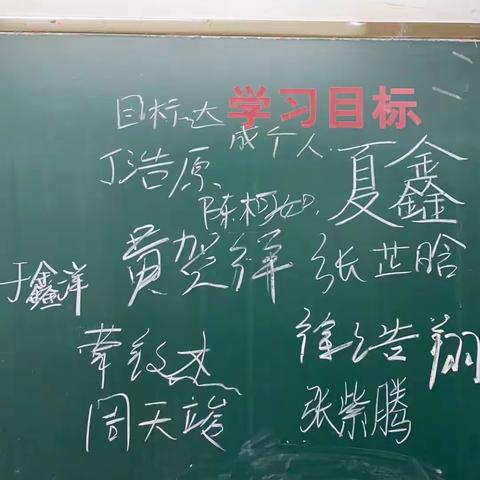 学习目标
目标达成个人
丁浩原 夏鑫
陈柯如
于鑫洋 黄贺祥 张芷晗
徐浩翔
周天竣 张紫腾